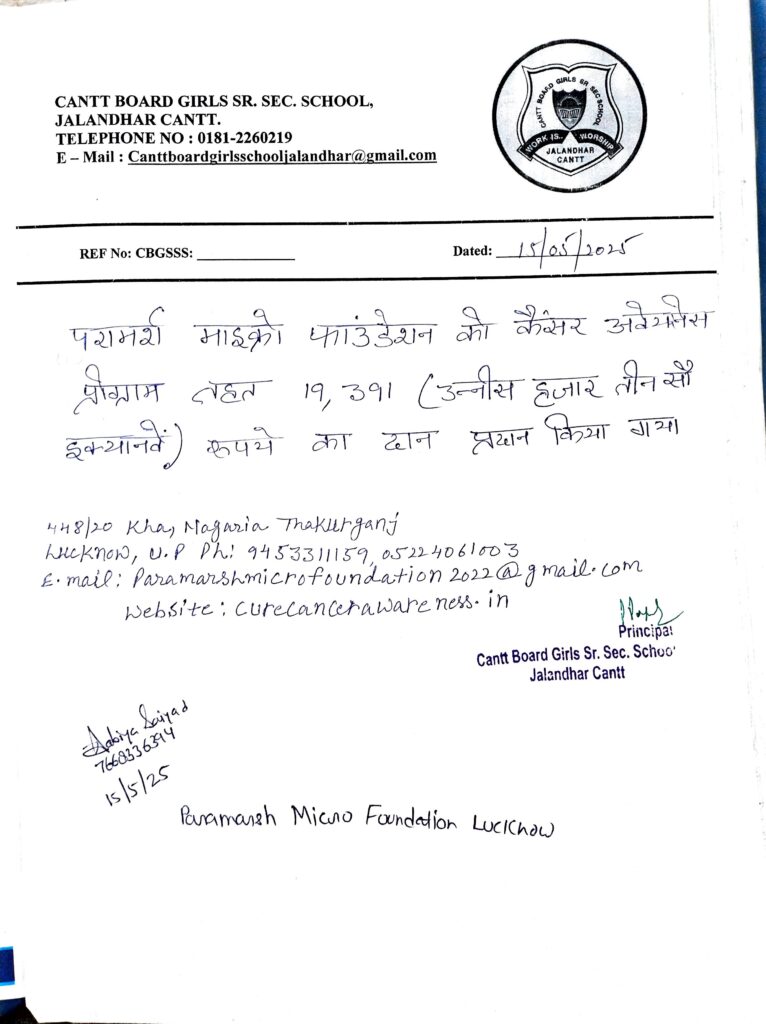 CANTT BOARD GIRLS SR. SEC. SCHOOL,
JALANDHAR CANTT.
TELEPHONE NO : 0181-2260219
E – Mail : Canttboardgirlsschooljalandhar@gmail.com
CANTT BOARD GIRLS SR SEC SCHOOL
WORK IS WORSHIP
JALANDHAR
CANTT
REF No: CBGSSS:
Dated: 15/05/2025
परामर्श माइक्रो फाउंडेशन को कैंसर अवेयरनेस
प्रोग्राम तहत 19,391 (उन्नीस हजार तीन सौ
इक्यानवें) रूपये का दान प्रदान किया गया
448/20 Kha, Nagaria Thakurganj
Lucknow, U.P Ph: 9453311159, 05224061003
E.mail: Paramarshmicrofoundation2022@gmail.com
Website: curecancerawareness.in
Principal
Cantt Board Girls Sr. Sec. School
Jalandhar Cantt
Adbiya Saiyad
7668336394
15/5/25
Paramarsh Micro Foundation Lucknow